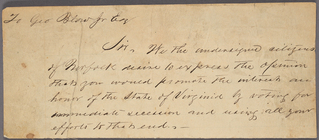 To Geo Blow Jr Esq
Sir, We the undersigned citizens
of Norfolk desire to express the opinion
that you would promote the interest and
honor of the State of Virginia by voting for
immediate secession and using all your
efforts to that end. —